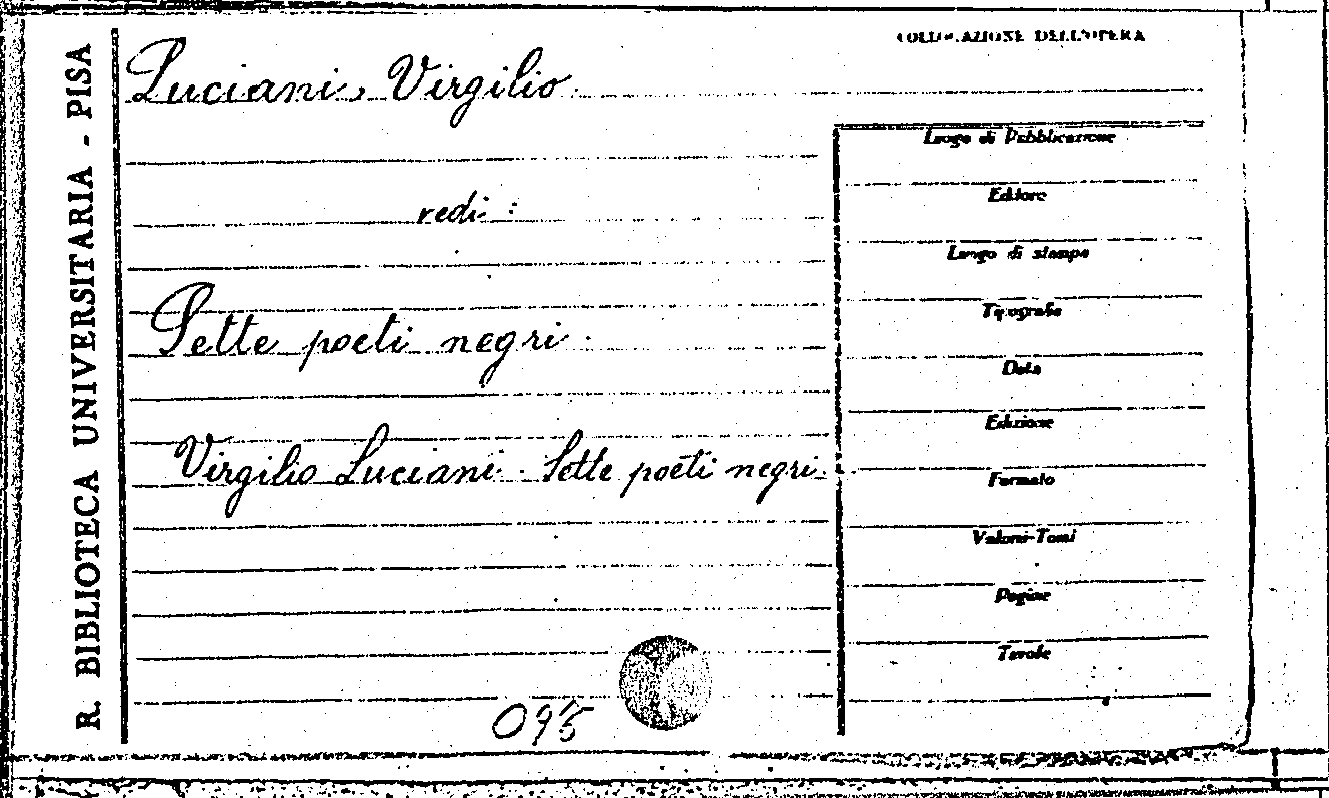 R. BIBLIOTECA UNIVERSITARIA - PISA
COLLOCAZIONE DELL'OPERA
Luciani, Virgilio
vedi:
Sette poeti negri.
Virgilio Luciani. Sette poeti negri.
095
Luogo di Pubblicazione
Editore
Luogo di stampa
Tipografia
Data
Edizione
Formato
Volumi-Tomi
Pagine
Tavole